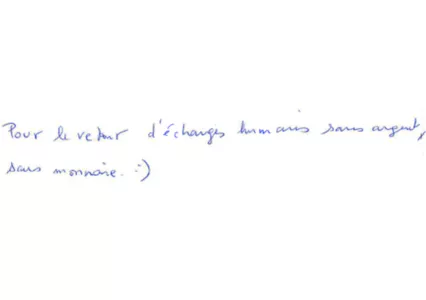 Pour le retour d'échanges humains sans argent,
sans monnaie. :)